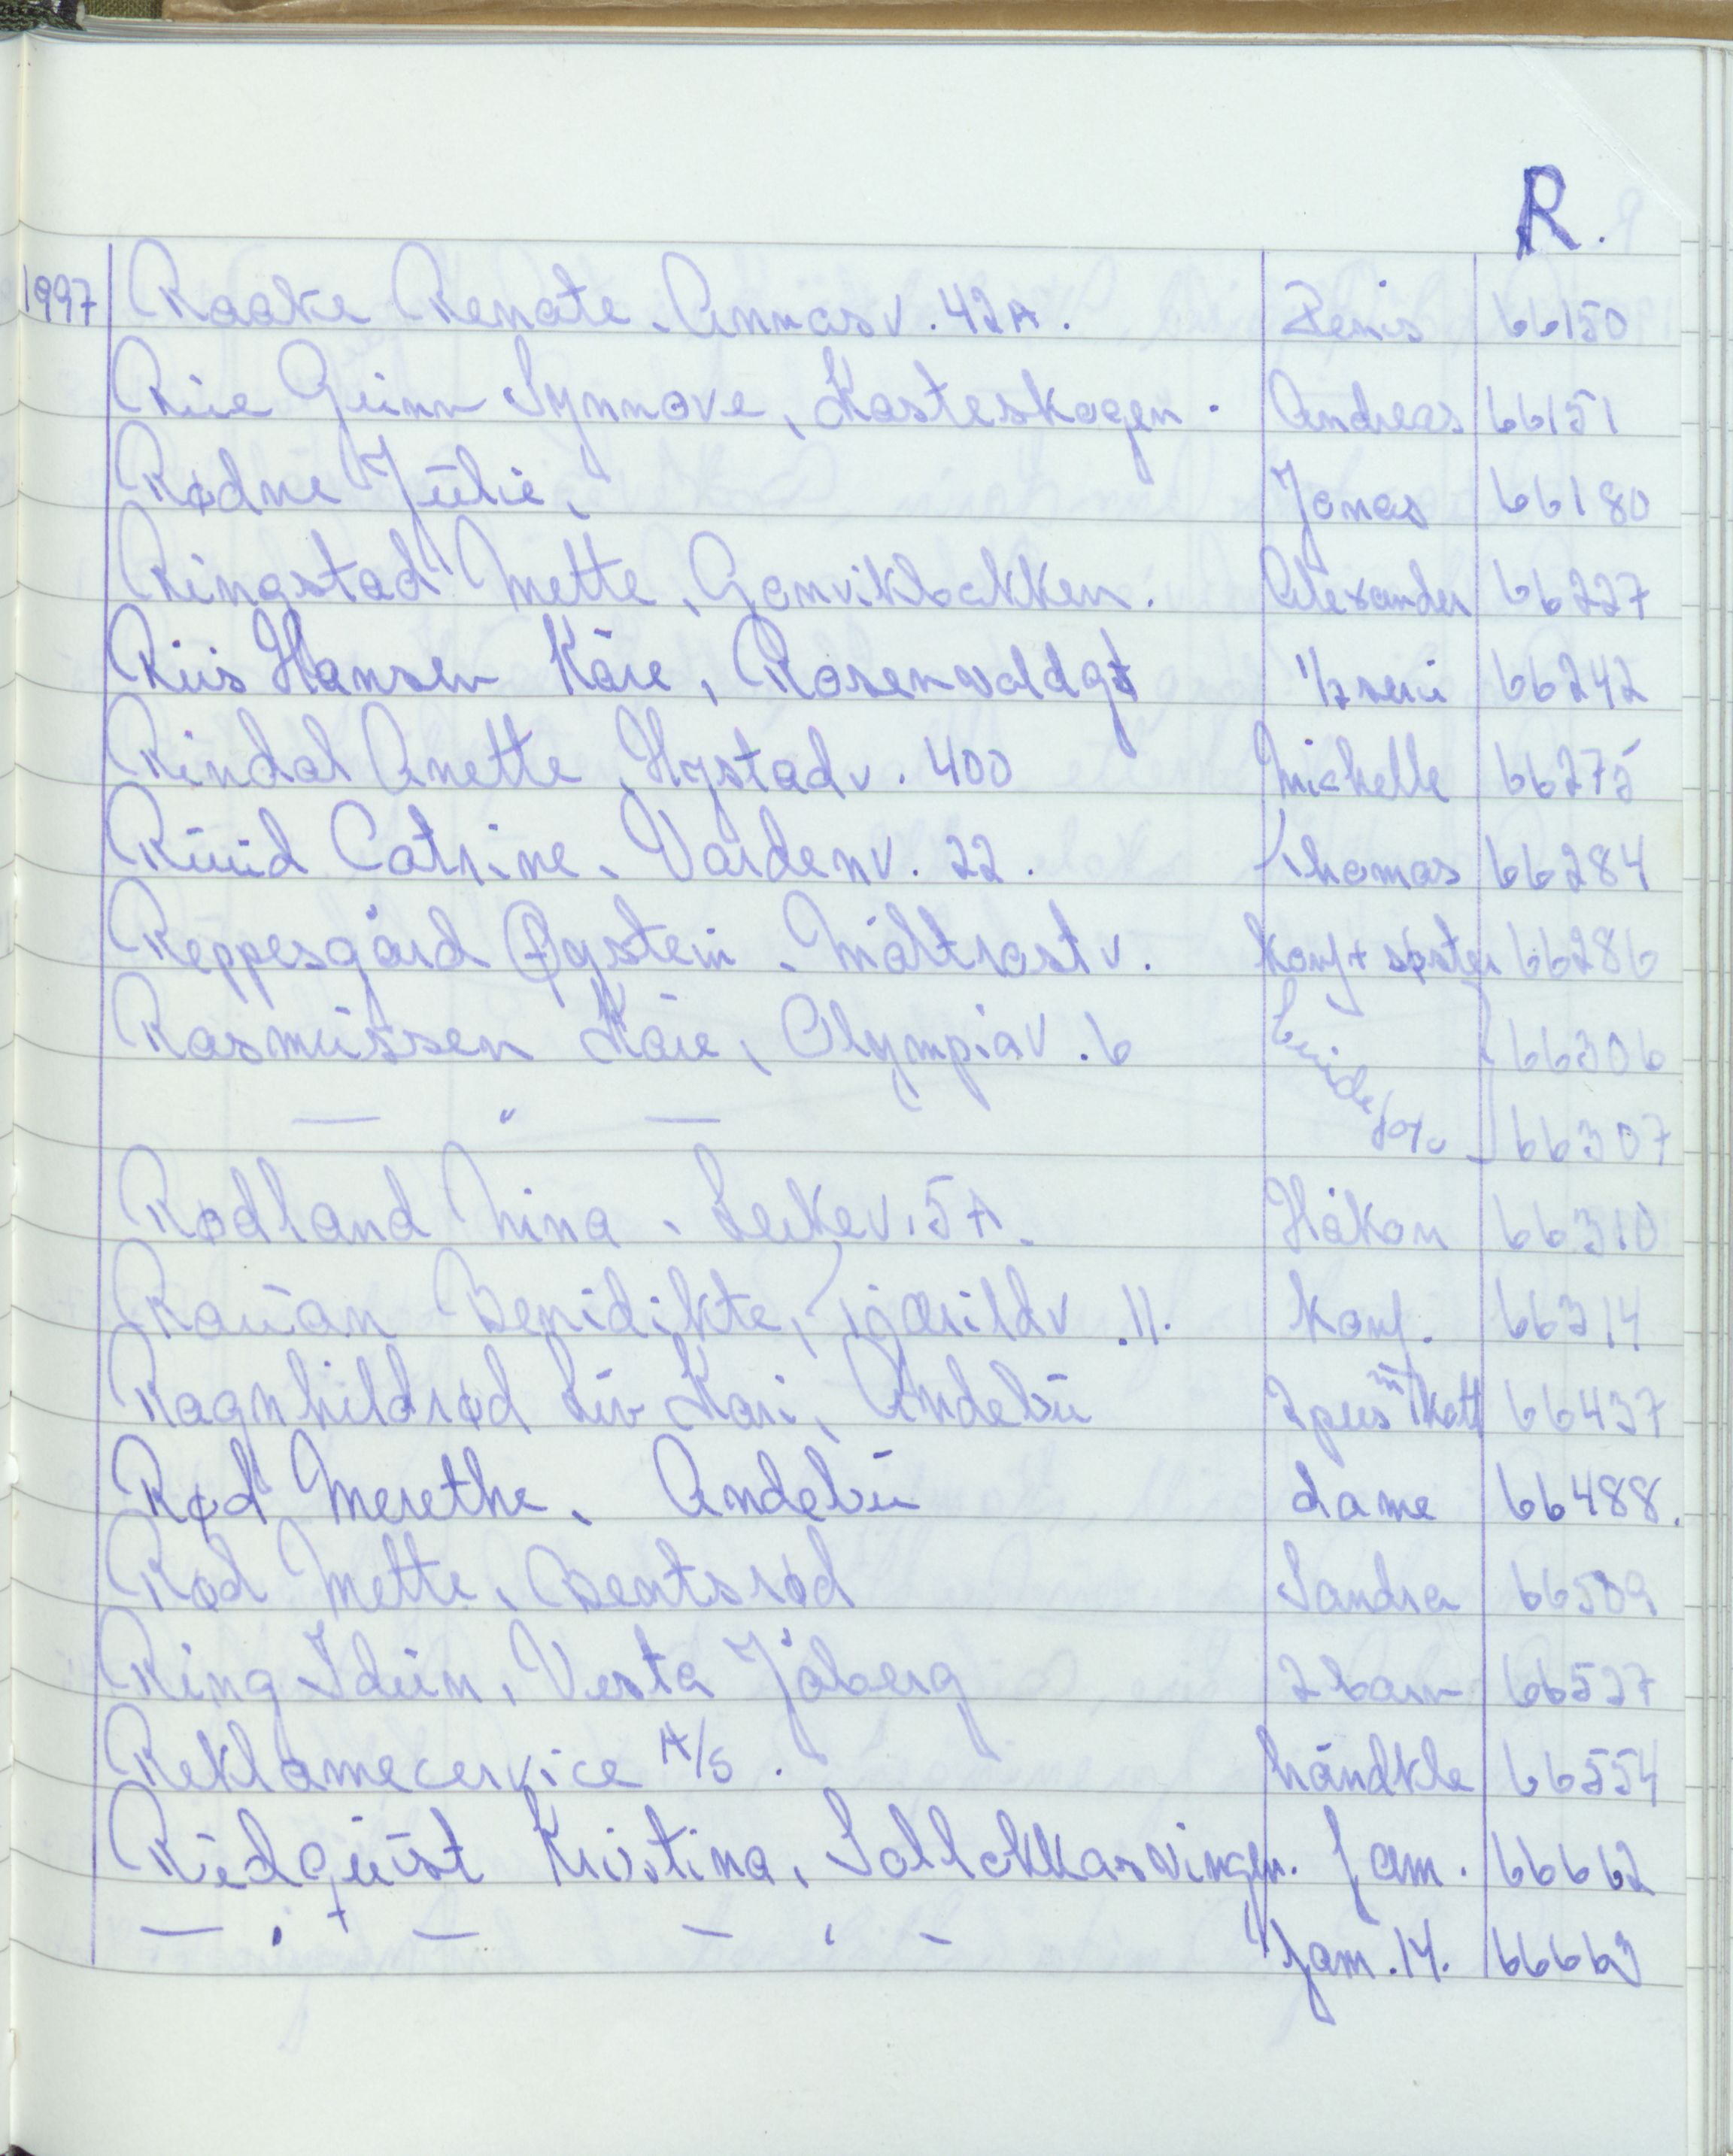 R.
1997 Raake Renate. Annasv. 42A. Denis 66150
Riie Gunn Synnøve, Kasteskogen. Andreas 66151
Rødne Julie, Jonas 66180
Ringstad Mette, Gonvikbakken. Alexander 66227
Riis Hansen Kåre, Rosenvoldgt 66242
Rindal Anette, Hystadv. 400 Michelle 66275
Ruud Catrine, Vardenv. 22. Thomas 66284
Reppesgård Øystein. Måltrostv. Konf + søster 66286
Rasmussen Kåre, Olympiav. 6 brude 66306
— " — foto 66307
Rødland Nina, Leikev. 5A. Håkon 66310
Rauan Benidikte, 11. Konf. 66314
Ragnhildrød Liv Kari, Andebu 2 pers m/katt 66437
Rød Merethe, Andebu dame 66488.
Rød Mette, Bentsrød Sandra 66509
Ring Idun, Vestre Jåberg 2 barn 66527
Reklamecervice A/S. håndkle 66554
Kristina, Sollokkasvingen. fam. 66662
— " — — " — fam. 14. 66663